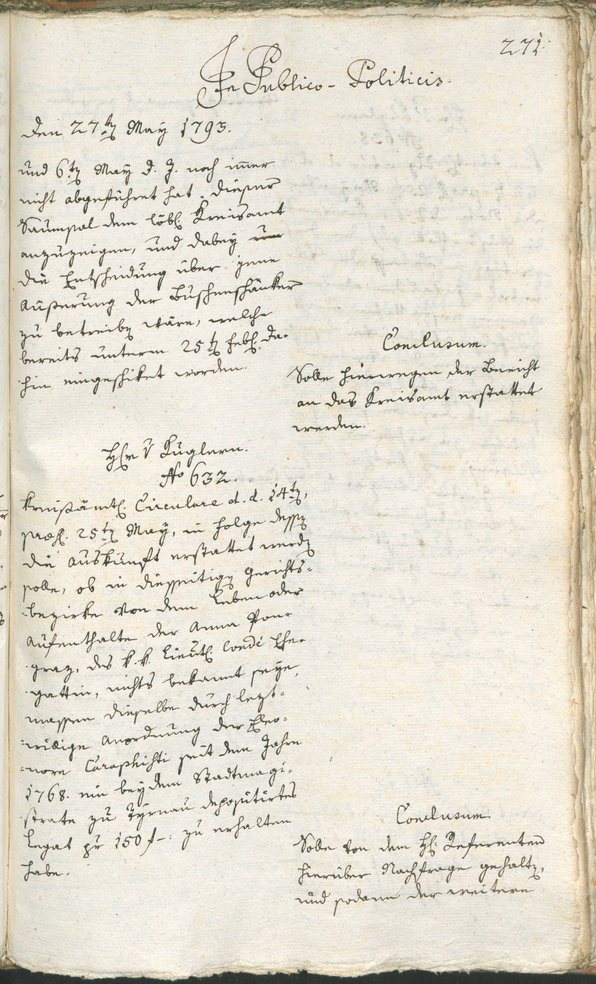 271.
In Publico-Politicis.
Den 27ten May 1793.
und 6ten May d. J. noch immer
nicht abgeführet hat, diesen
Saumsal dem löbl. Kreisamt
anzuzeigen, und dabey um
die Entscheidung über jene
Äußerung der Buschenschänker
zu betreiben wäre, welche
bereits unterm 25ten Feb. da-
hin eingeschiket worden.
Conclusum.
Solle hierwegen der Bericht
an das Kreisamt erstattet
werden.
Hr. v Kuglern.
No 632.
Kreisämtl. Circulare d. d. 14ten,
praes. 25ten May, in Folge dessen
die Auskunft erstattet werden
solle, ob in diesseitigen Gerichts-
bezirke von dem Leben oder
Aufenthalte der Anna Pon-
graz, des k. k. Lieut. Conde Ehe-
gattin, nichts bekannt seye,
massen dieselbe durch lezt-
willige Anordnung der Eleo-
nore seit dem Jahre
1768. ein bey dem Stadtmagi-
strate zu Tyrnau deposiürtes
Legat pr 150 f. zu erhalten
habe.
Conclusum.
Solle von dem H. Referenten
hierüber Nachfrage gehalten,
und sodann der weitere